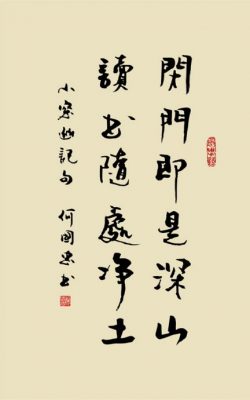 閉門即是深山
讀書隨處净土
小窓幽記句 何國忠書